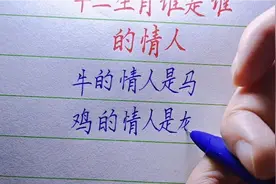 十二生肖谁是谁
的情人
牛的情人是马
鸡的情人是